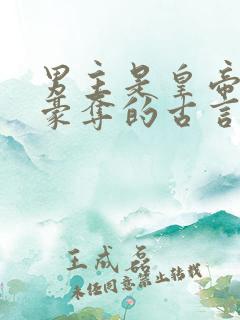 男主是皇帝
豪夺的古言
王成磊
未经同意禁止转载